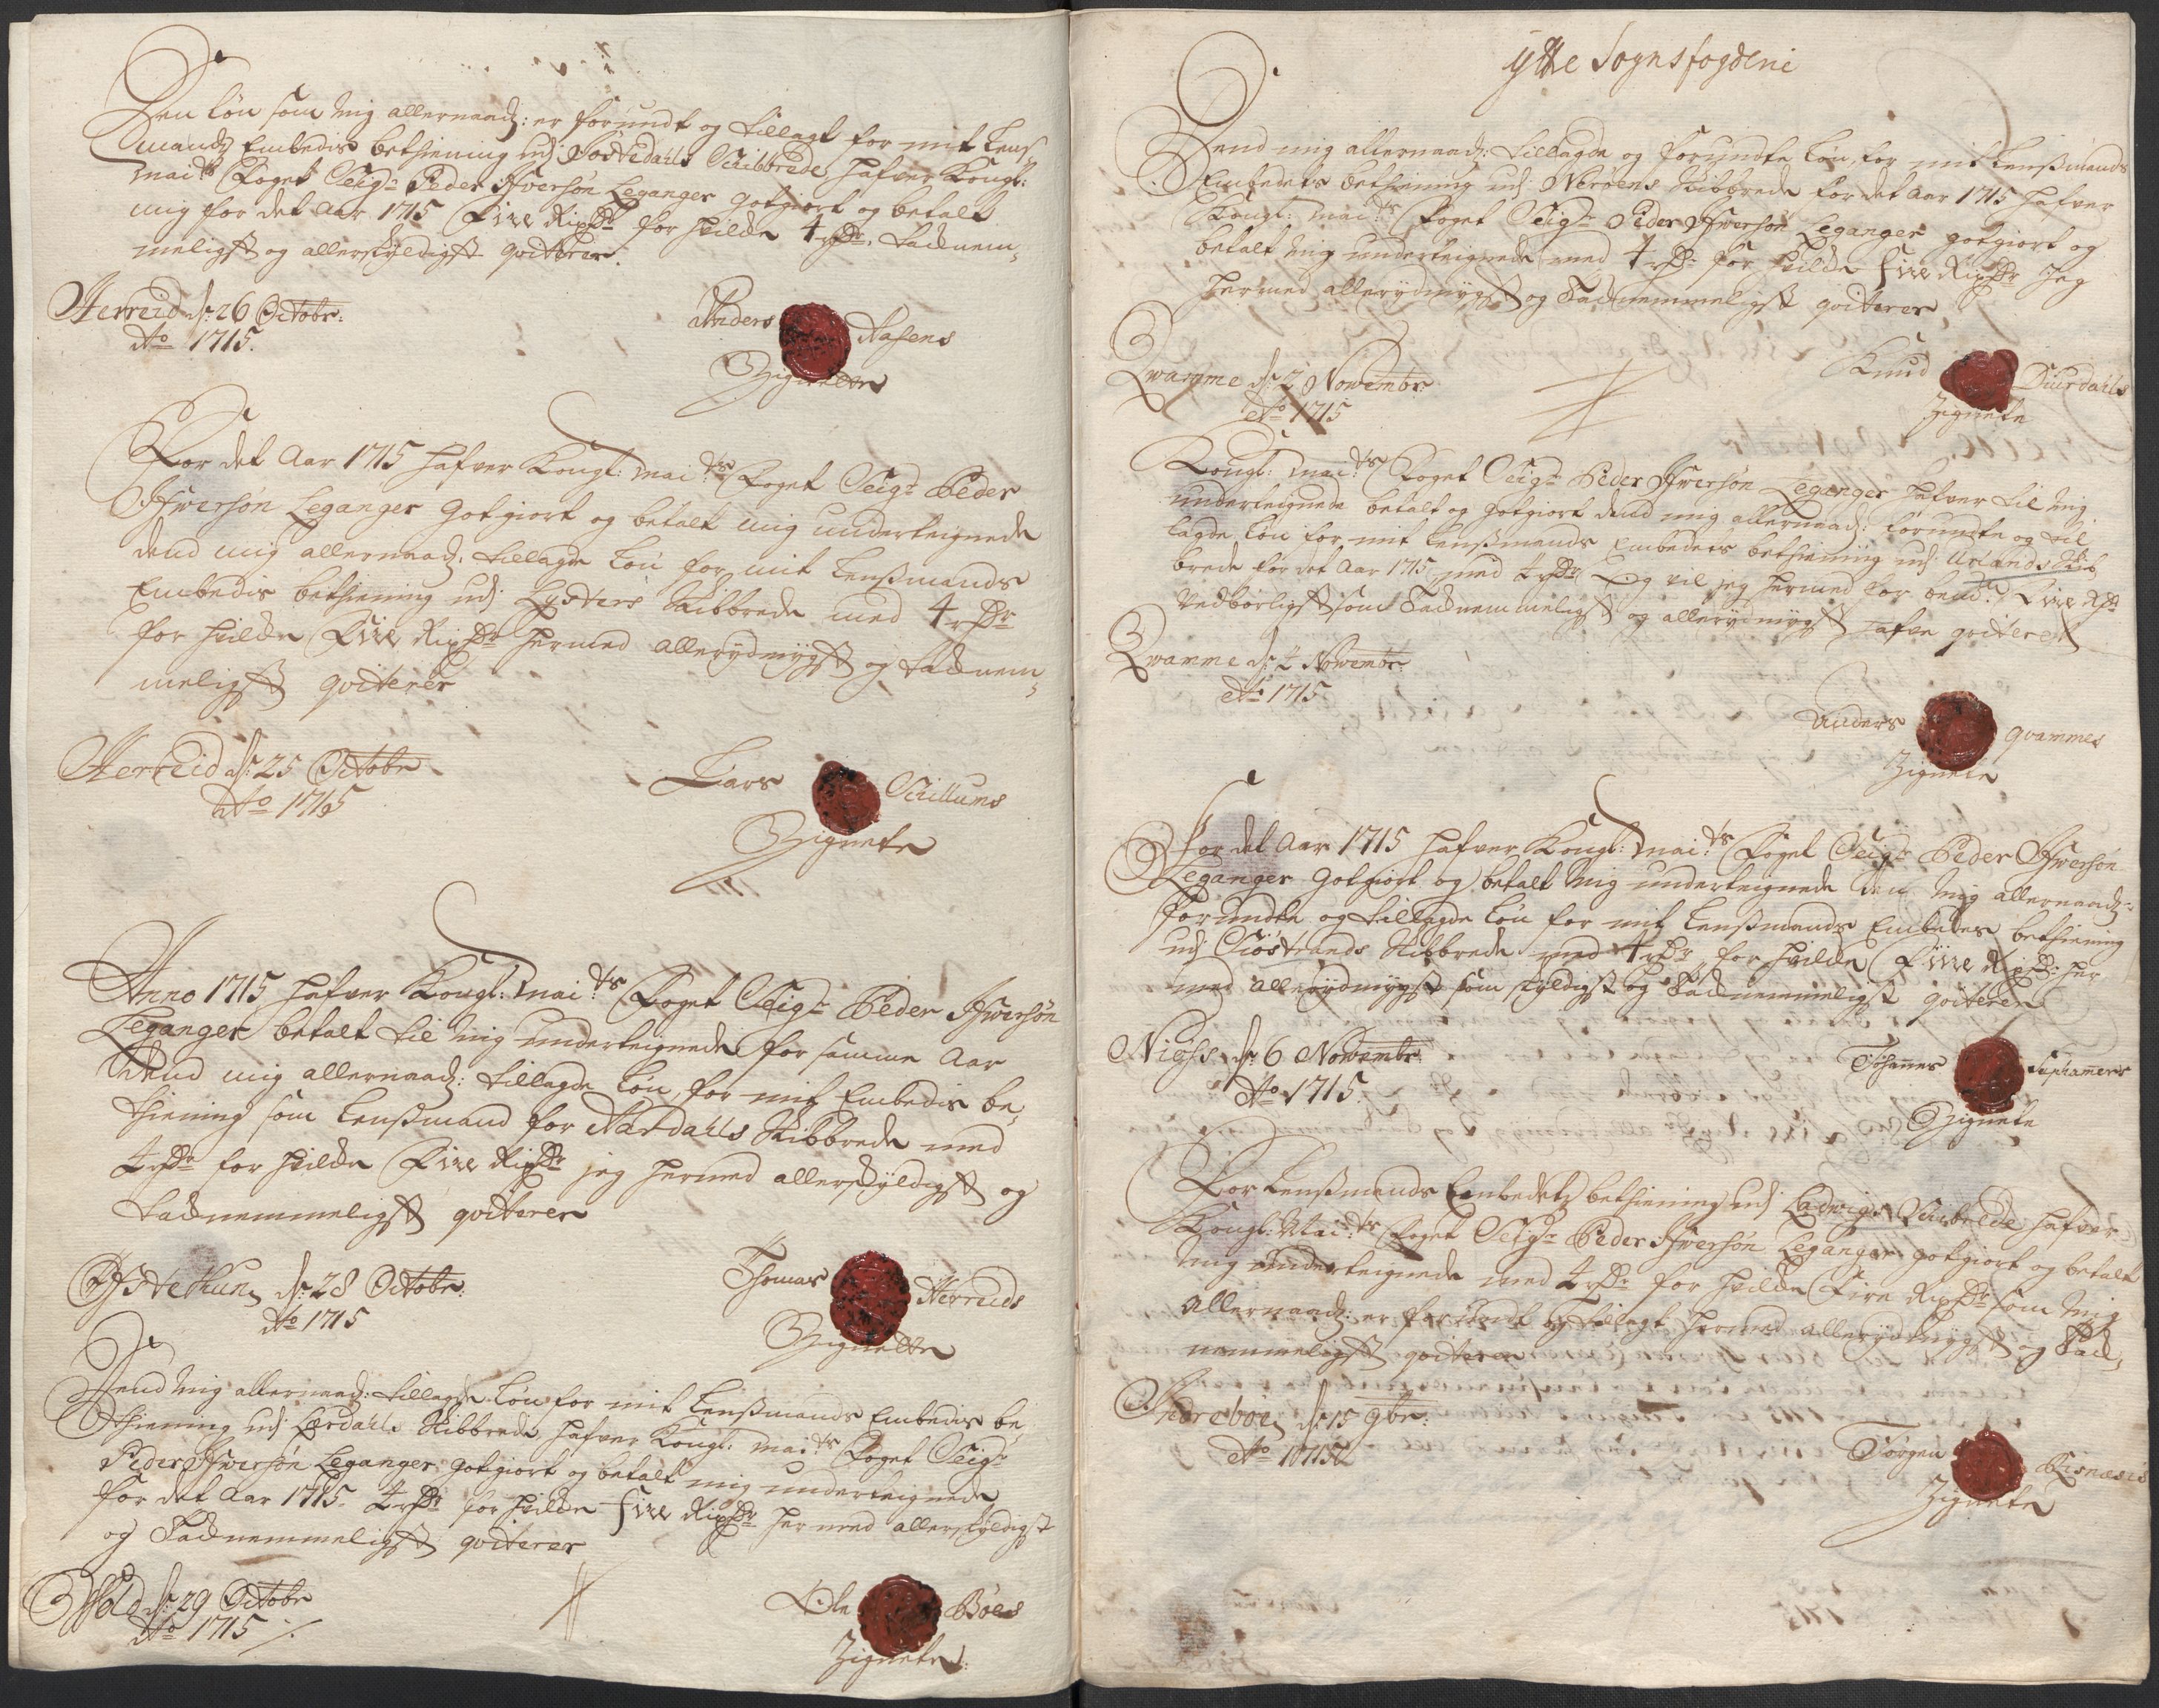 Den løn som mig allernaad: er forundt og tillagt for mit Lens
mands Embedis bethiening udj Jostedahls Schibbrede hafver Kongl:
maits Foget Seigr Peder Ifversøn Leganger gotgiort og betalt
mig for det aar 1715 Fire Rixdr for hvilcke 4 rdr. tacknem-
meligst og allerskyldigst qviterer.
Herreid d: 26 Octobr:
Ao 1715.
Anders Aasens
Zignette
For det Aar 1715 hafver Kongl: maits Foget Seigr Peder
Ifwersøn Leganger gotgiort og betalt mig underteignede
dend mig allernaad: tillagde Løn for mit Lensmands
Embedis bethiening udj Lysters Skibbrede med 4 rdr
for hvilcke Fire Rixdr hermed allerydmygst og tacknem-
meligst qviterer
Herreid d: 25 Octobr
Ao 1715
Lars Skillums
Zignete
Anno 1715 hafver Kongl: maits Foget Seigr Peder Ifwersøn
Leganger betalt til mig underteignede for samme Aar
dend mig allernaad: tillagde Løn, for mit Embedis be-
thiening som Lensmand for Aardahls Skibbrede med
4 rdr for hvilcke Fire Rixdr jeg hermed allerskyldigst og
tacknemmeligst qviterer
d: 28 Octobr:
Ao 1715
Thomas Herreids
Zignette
Dend mig allernaad: tillagde Løn for mit Lensmands Embedis be-
thiening udj Lærdahls Skibbrede hafver Kongl: maits Foget Seigr
Peder Ifwersøn Leganger gotgiort og betalt mig underteignede
for det Aar 1715 4 rdr for hvilcke Fire Rixdr hermed allerskyldigst
og Tacknemmeligst qviterer
Wold d: 29 Octobr
Ao 1715
Ole Böes
Zignete:
ytre Sognsfogderie
Dend mig allernaad: tillagde og forundte Løn, for mit Lensmands
Embedets bethiening udj Nerøens Skibbrede for det Aar 1715 hafver
Kongl: maits Foget Seigr Peder Ifwersøn Leganger gotgiort og
betalt mig underteignede med 4 rdr for hvilcke Fire Rixdr Jeg
hermed allerydmygst og Tacknemmeligst qviterer
Qwamme d: 2 Novembr:
Ao 1715
Knud Diurdahls
Zignete
Kongl: maits Foget Seigr Peder Ifwersøn Leganger hafver til mig
underteignede betalt og gotgiort dend mig allernaad: forundte og til
lagde Løn for mit Lensmands Embedets bethiening udj Urlands Skib
brede for det Aar 1715 med 4 rdr Og vil jeg hermed for bemte Fire Rdr
vedbørligst som Tacknemmeligst og allerydmygst hafve qviteret
Qwamme d: 2 Novembr:
Ao 1715
Anders qvammes
Zignete
For det Aar 1715 hafver Kongl: maits Foget Seigr Peder Ifwersøn
Leganger gotgiort og betalt mig underteignede den mig allernaad:
forundte og tillagde Løn for mit Lensmands Embedes bethiening
udj Siöstrands Skibbrede med 4 rdr, for hvilcke Fiire Rixdr her
med allerydmygst som skyldigst og Tacknemmeligst qviterer
d: 6 Novembr:
Ao 1715.
Johannes Suphamers
Zignete
For Lensmands Embedets bethiening udj Ladwigs Skibrede hafver
Kongl: Maits Foget Seigr Peder Ifwersøn Leganger gotgiort og betalt
mig underteignede med 4 rdr for hvilcke Fire Rixdr som mig
allernaad: er forundt og tillagt hermed allerydmygst og Tack-
nemmeligst qviterer
Indreboe d: 15 9br:
Ao 1715
Jørgen
Zignete